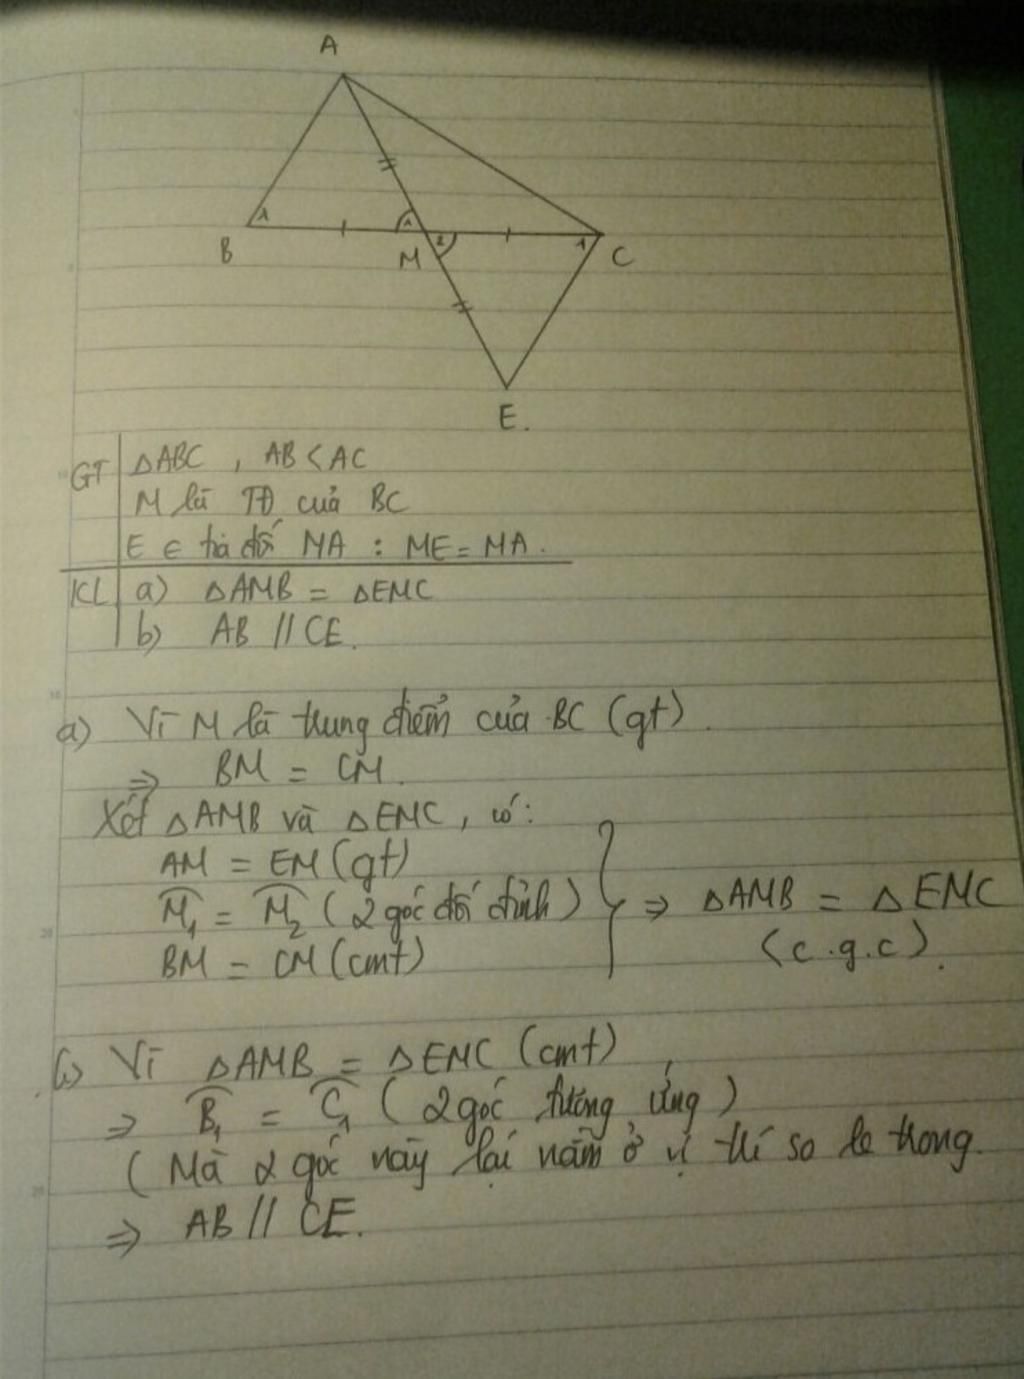 A
1
1
B
M
2
1
C
E.
GT
ΔABC , AB < AC
M là TĐ của BC
E ∈ tia đối MA : ME = MA.
KL
a) ΔAMB = ΔEMC
b) AB // CE.
a) Vì M là trung điểm của BC (gt).
⇒ BM = CM.
Xét ΔAMB và ΔEMC, có:
AM = EM (gt)
M̂₁ = M̂₂ (2 góc đối đỉnh)
BM = CM (cmt)
⇒ ΔAMB = ΔEMC
(c.g.c).
b) Vì ΔAMB = ΔEMC (cmt)
⇒ B̂₁ = Ĉ₁ (2 góc tương ứng)
( Mà 2 góc này lại nằm ở vị trí so le trong.
⇒ AB // CE.